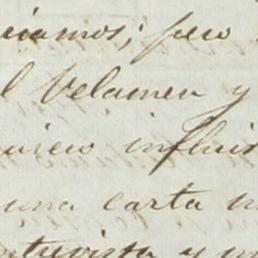 riamos; pero
l Velamen y
uien influi
una carta
entrevista y un